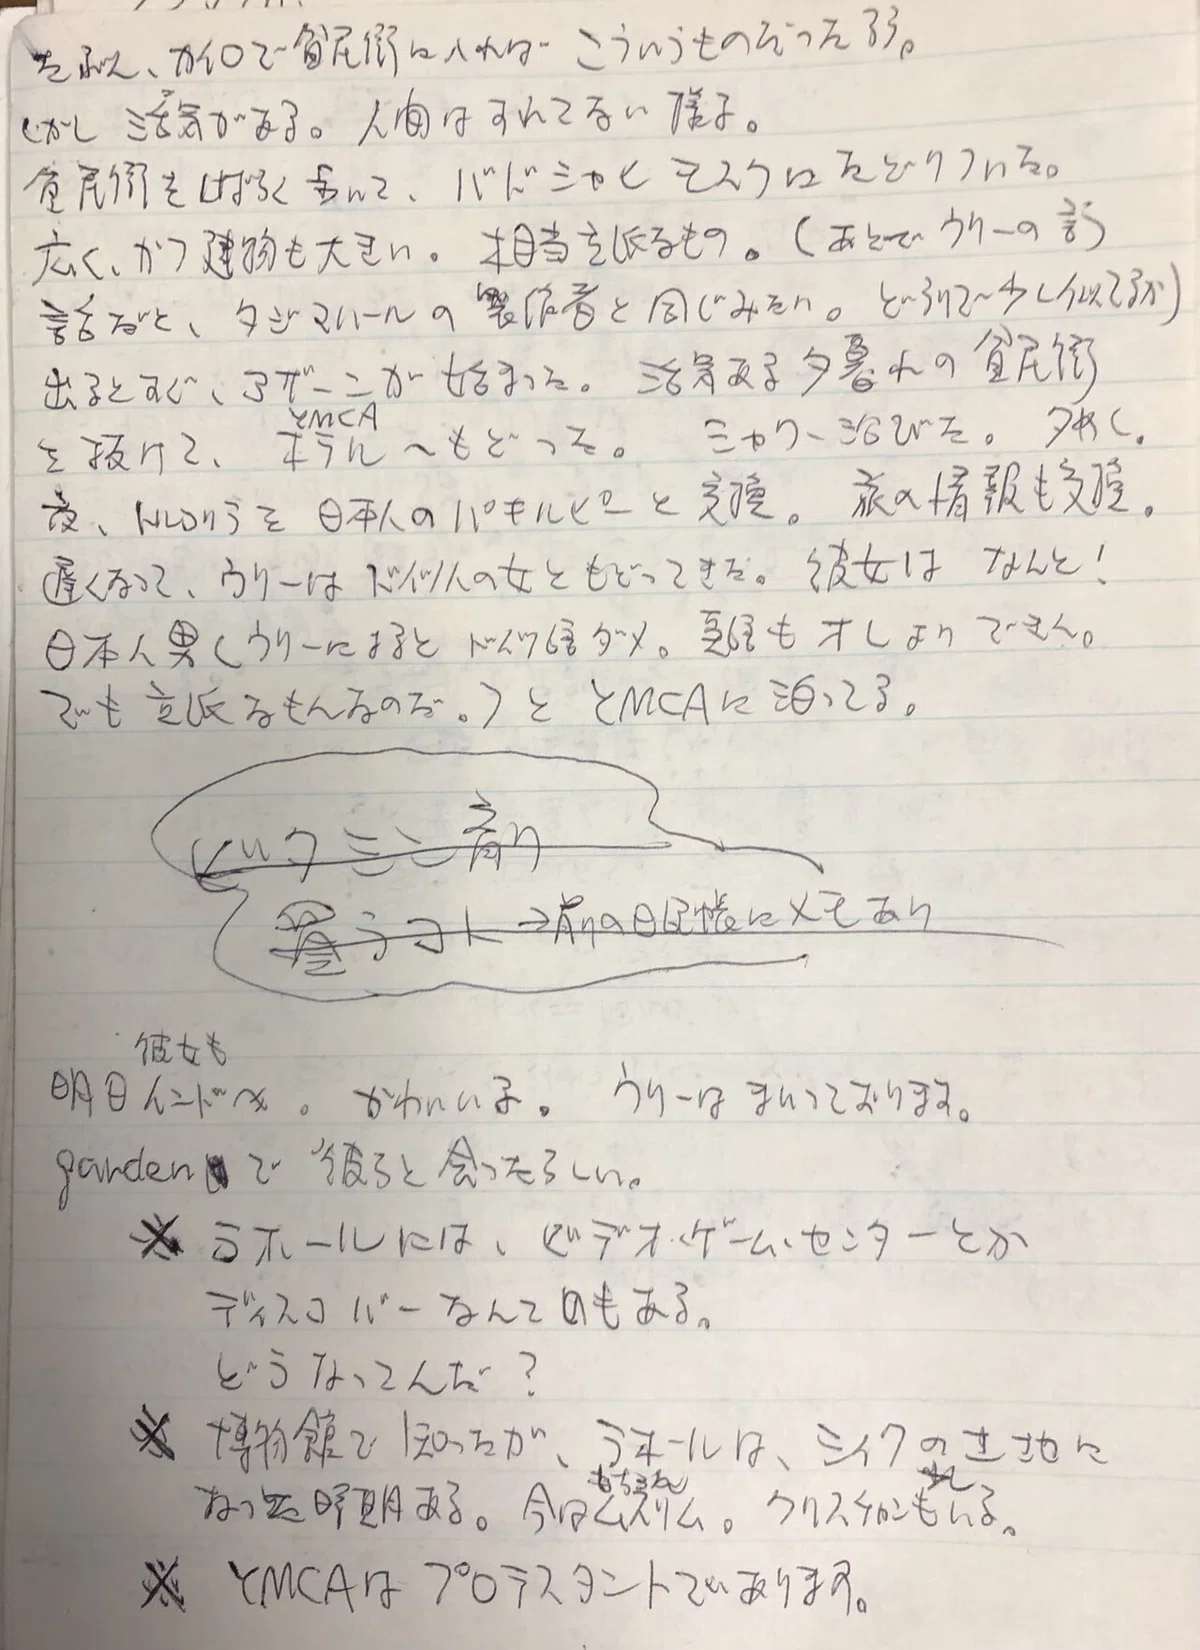 たぶん、カイロで貧民街に入ればこういうものだったろう。
しかし活気がある。人間はすれてない様子。
貧民街をしばらく歩いて、バドシャヒモスクにたどりついた。
広く、かつ建物も大きい。相当立派なもの。(あとでウリーの言う
話だと、タジマハールの製作者と同じみたい。どうりで少し似てるが)
出るとすぐ、アザーンが始まった。活気ある夕暮れの貧民街
を抜けて、ホテルYMCAへもどった。シャワー浴びた。夕めし。
夜、トルコリラを日本人のパキルピーと交換。旅の情報も交換。
遅くなって、ウリーはドイツ人の女ともどってきた。彼女はなんと!
日本人男(ウリーによるとドイツ語ダメ。英語もオしよりできん。
でも立派なもんなのだ。)とYMCAに泊ってる。
ビックミン
ラコト→前の日記帳にメモあり
彼女も
明日インドへ。かわいい子。ウリーはまいっております。
gardenで彼らと会ったらしい。
※ ラホールには、ビデオ・ゲーム・センターとか
ディスコバーなんてのもある。
どうなってんだ?
※ 博物館で知ったが、ラホールは、シイクの土地に
なった時期ある。今はもちろんムスリム。クリスチャンもいる。
※ YMCAはプロテスタントであります。